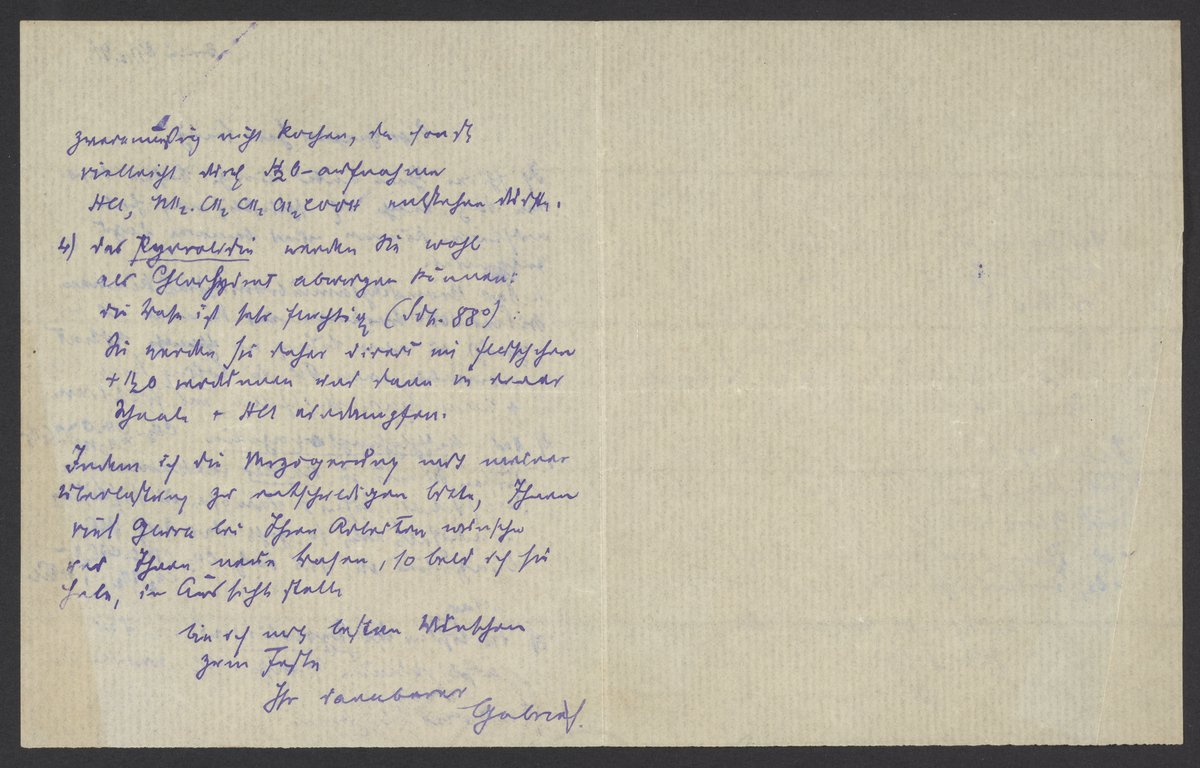 zweckmäßig nicht kochen, da sonst
vielleicht durch H2O-aufnahme
HCl, NH2.CH2 CH2 CH2COOH entstehen dürfte.
4) das Pyrrolidin werden Sie wohl
als Chlorhydrat abwiegen können:
die Base ist sehr flüchtig (Sdp. 88°)
Sie werden sie daher direct im Fläschchen
+ H2O verdünnen und dann in einer
Schaale + HCl eindampfen.
Indem ich die Verzögerung mit meiner
Überlastung zu entschuldigen bitte, Ihnen
viel Glück bei Ihren Arbeiten wünsche
und Ihnen neue Basen, so bald ich sie
habe, in Aussicht stelle
bin ich mit besten Wünschen
zum Feste
Ihr dankbarer
Gabriel.